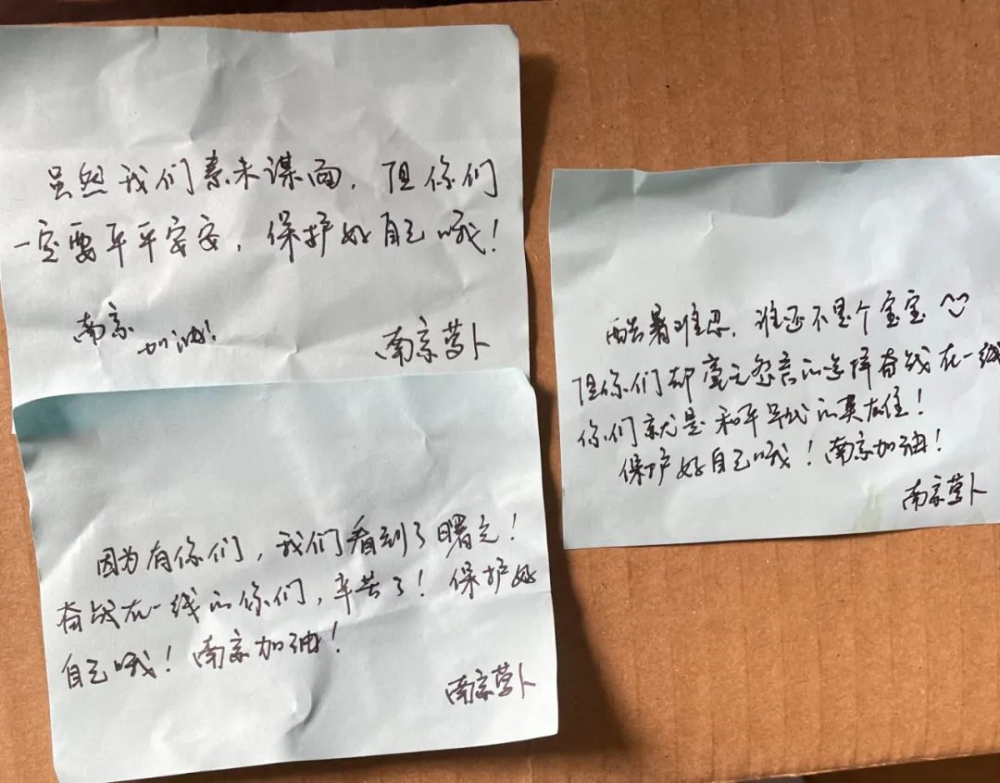 虽然我们素未谋面，但你们
一定要平平安安，保护好自己哦！
南京
加油！
南京萝卜
因为有你们，我们看到了曙光！
奋战在一线的你们，辛苦了！保护好
自己哦！南京加油！
南京萝卜
酷暑难忍，谁还不是个宝宝
但你们却毫无怨言的选择奋战在一线
你们就是和平年代的英雄！
保护好自己哦！南京加油！
南京萝卜